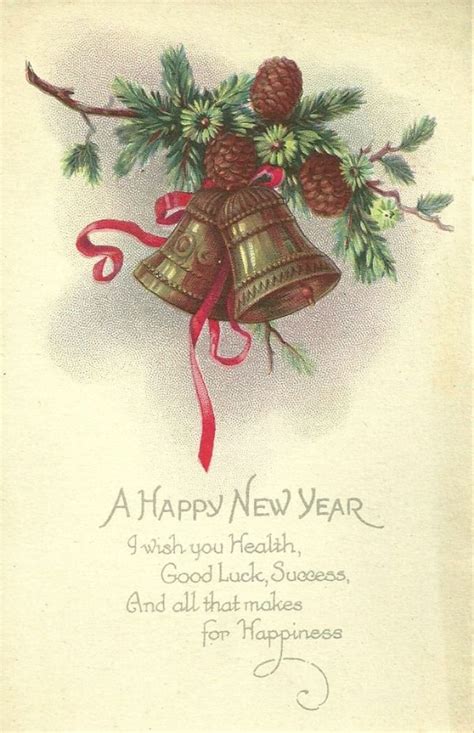 A Happy New Year
I wish you Health,
Good Luck, Success,
And all that makes
for Happiness